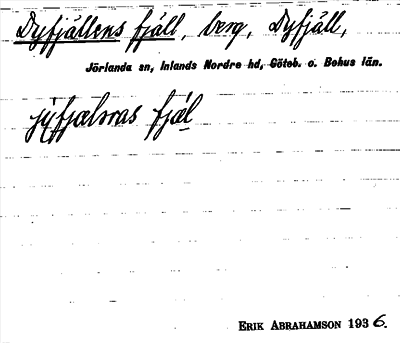 Dyfjällens fjäll, berg, Dyfjäll,
Jörlanda sn, Inlands Nordre hd, Göteb. o. Bohus län.
fjäl
ERIK ABRAHAMSON 1936.